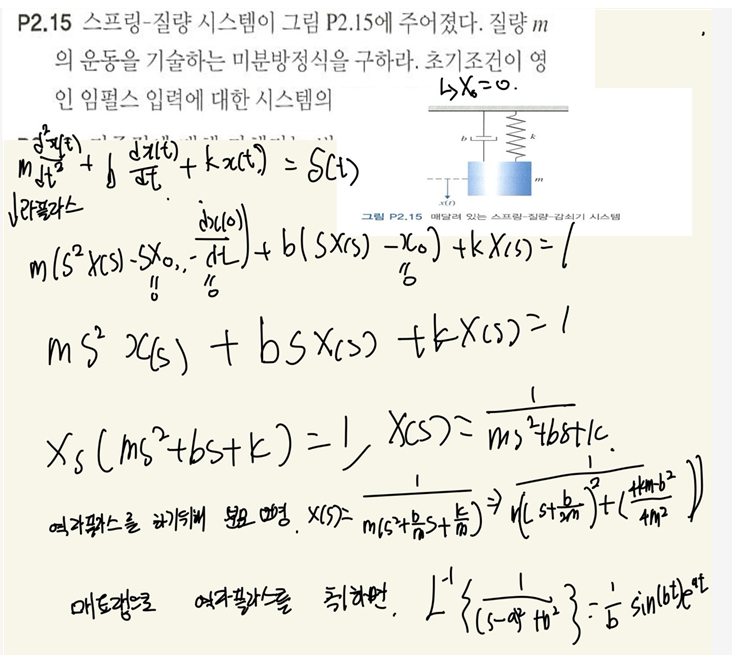 P2.15 스프링-질량 시스템이 그림 P2.15에 주어졌다. 질량 m
의 운동을 기술하는 미분방정식을 구하라. 초기조건이 영
인 임펄스 입력에 대한 시스템의
↳X₀=0.
b k
m
x(t)
그림 P2.15 매달려 있는 스프링-질량-감쇠기 시스템
m d²x(t)/dt² + b dx(t)/dt + kx(t) = δ(t)
↓라플라스
m(s²X(s)-sX₀-dx(0)/dt)+b(sX(s)-x₀)+kX(s)=1
0 0 0
ms² X(s) + bsX(s) +kX(s)=1
Xs(ms²+bs+k)=1, X(s)=1/(ms²+bs+k).
역라플라스를 하기위해 분모 변형. X(s)=1/(m(s²+b/m s+k/m)) ⇒ 1/(m((s+b/2m)²+(4km-b²/4m²)))
매트랩으로 역라플라스를 취하면, L⁻¹{1/((s-a)²+b²)}=1/b sin(bt)eᵃᵗ